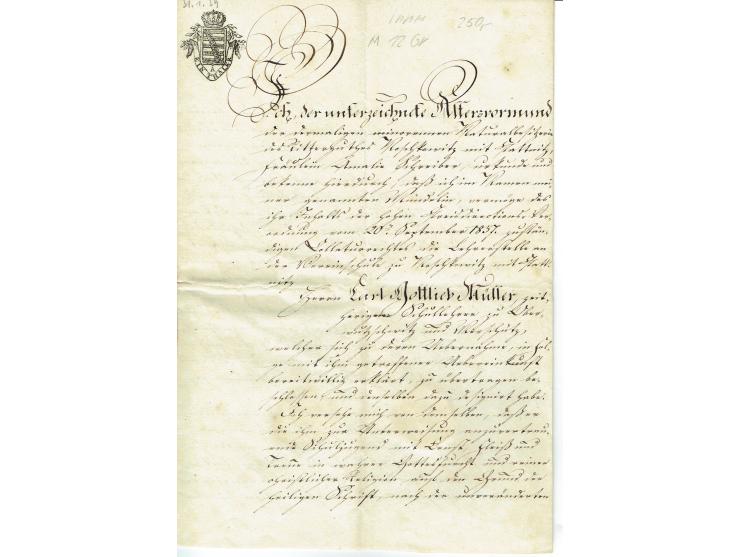 31.1.29
M 12 Gr
250,-
EIN THALER
Ich, der unterzeichnete Altersvormund
der dermaligen minorennen Naturalbesitzerin
des Ritterguthes Roschkowitz mit Stattnitz,
Fräulein Amalie Schreiber, urkunde und
bekenne hierdurch, daß ich im Namen mei-
ner genannten Mündelin, vermöge des
ihr Inhalts der hohen Kreisdirections Ver-
ordnung vom 20n September 1857. zustän-
digen Collaturrechtes die Lehrerstelle an
der Vereinschule zu Roschkowitz mit Statt-
nitz
Herrn Carl Gottlieb Müller, zeit-
herigem Schullehrer zu Ober-
und
welcher sich zu deren Uebernahme, in Fol-
ge mit ihm getroffener Uebereinkunft
bereitwillig erklärt, zu übertragen be-
schlossen, und denselben dazu designirt habe.
Ich versehe mich von demselben, daß er
die ihm zur Unterweisung anzuvertrau-
ende Schuljugend mit Ernst, Fleiß und
Treue in wahrer Gottesfurcht und reiner
christlicher Religion auf den Grund der
heiligen Schrift, nach der unveränderten